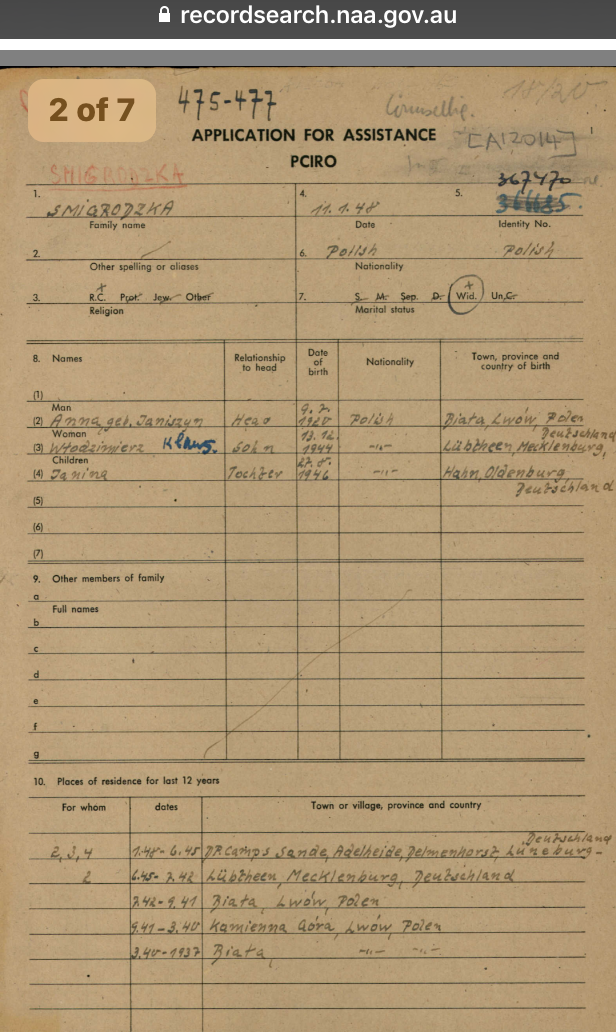 recordsearch.naa.gov.au
2 of 7
475-477
18/20
APPLICATION FOR ASSISTANCE
[A12014]
PCIRO
SMIGRODZKA
367470
1. SMIGRODZKA 4. 11.1.48 5.
Family name Date Identity No.
2. 6. Polish Polish
Other spelling or aliases Nationality
3. R.C. Prot. Jew. Other 7. S. M. Sep. D. Wid. Un.C.
Religion Marital status
8. Names Relationship to head Date of birth Nationality Town, province and country of birth
(1)
Man
(2) Anna geb. Janiszyn Head 9.7. 1920 Polish Biata, Lwów, Polen
Woman
(3) Włodzimierz Klaus. Sohn 13.12. 1944 -"- Lübtheen, Mecklenburg, Deutschland
Children
(4) Janina Tochter 27.8. 1946 -"- Hahn, Oldenburg Deutschland
(5)
(6)
(7)
9. Other members of family
a
Full names
b
c
d
e
f
g
10. Places of residence for last 12 years
For whom dates Town or village, province and country
2,3,4 1.48-6.45 DP.Camps Sande, Adelheide, Delmenhorst, Lüneburg- Deutschland
2 6.45-7.42 Lübtheen, Mecklenburg, Deutschland
7.42-9.41 Biata, Lwów, Polen
9.41-3.40 Kamienna Góra, Lwów, Polen
3.40-1937 Biata, -"- -"-